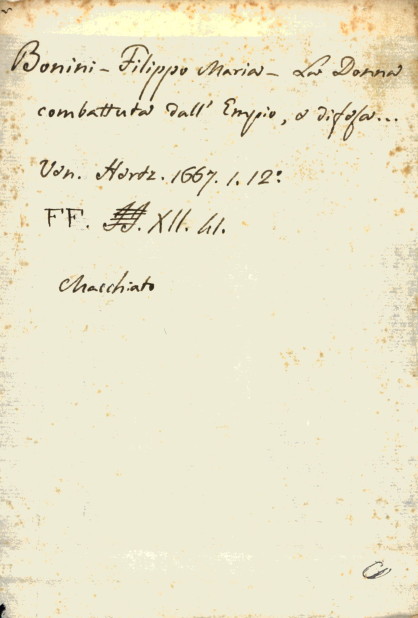 Bonini - Filippo Maria - La Donna
combattuta dall' Empio, e difesa...
Ven. Hertz. 1667. 1. 12:
FF. XII. 41.
Macchiato